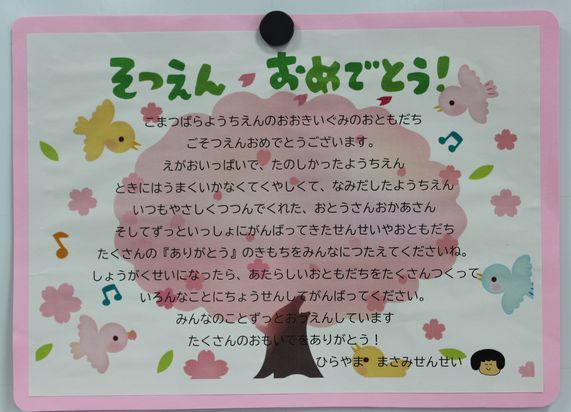 そつえん おめでとう！
こまつばらようちえんのおおきいぐみのおともだち
ごそつえんおめでとうございます。
えがおいっぱいで、たのしかったようちえん
ときにはうまくいかなくてくやしくて、なみだしたようちえん
いつもやさしくつつんでくれた、おとうさんおかあさん
そしてずっといっしょにがんばってきたせんせいやおともだち
たくさんの『ありがとう』のきもちをみんなにつたえてくださいね。
しょうがくせいになったら、あたらしいおともだちをたくさんつくって
いろんなことにちょうせんしてがんばってください。
みんなのことずっとおうえんしています
たくさんのおもいでをありがとう！
ひらやま まさみせんせい